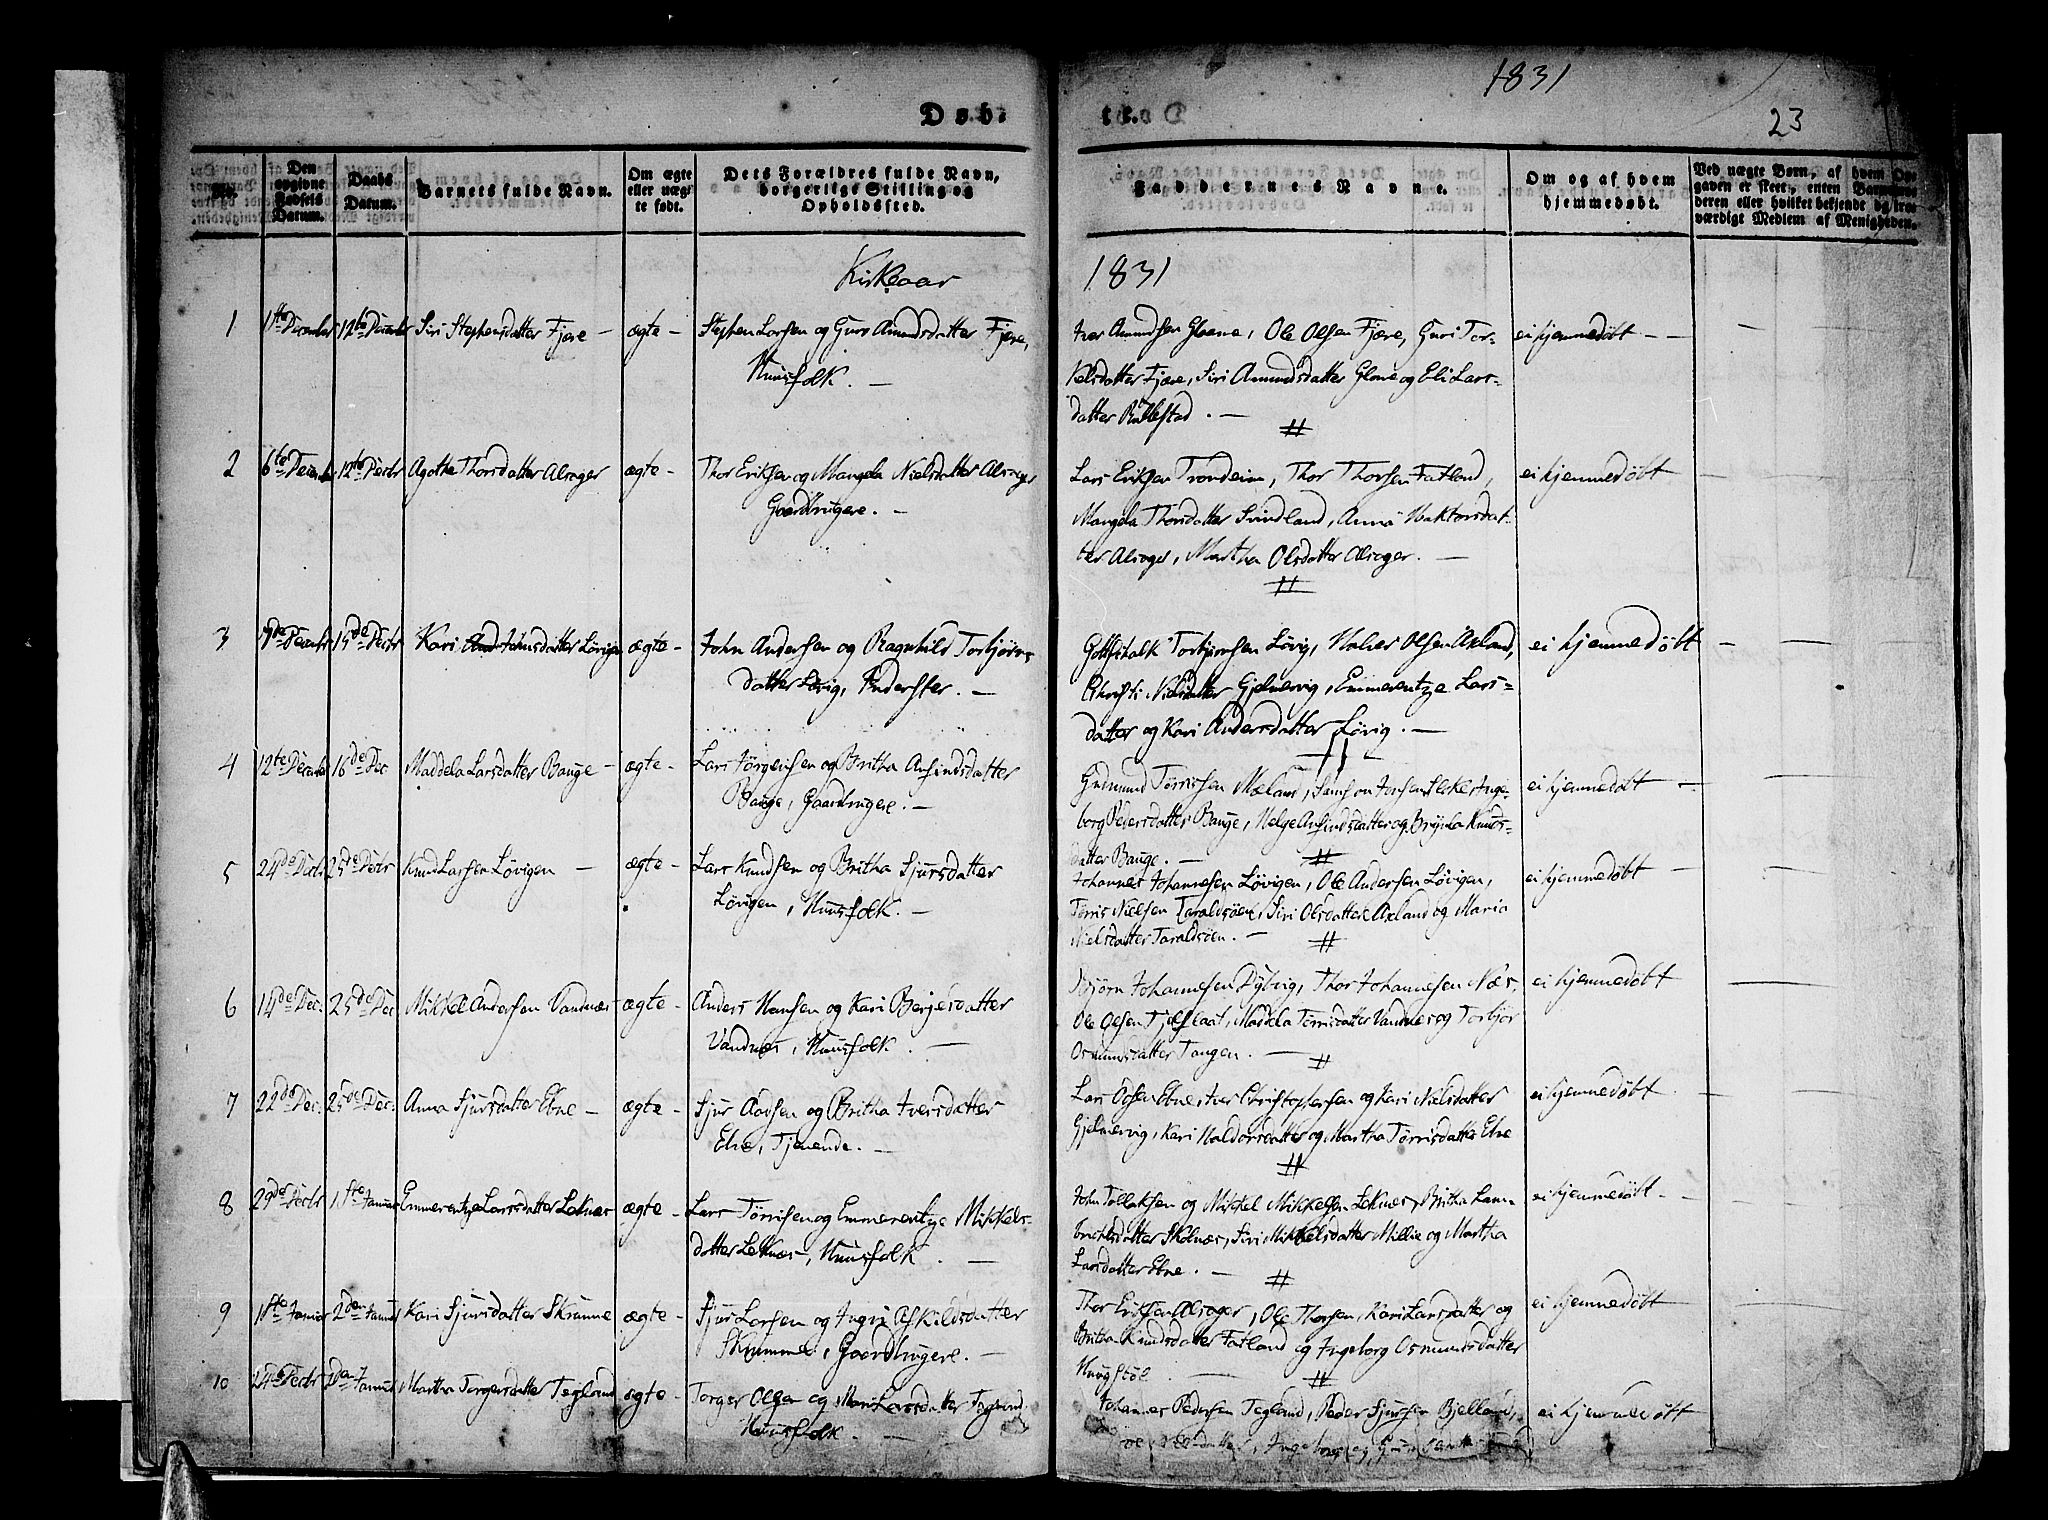 1831
23
Døb-
te.
Den opgivne Fødsels Datum.
Daabs Datum.
Barnets fulde Navn.
Om ægte eller uægte født.
Dets Forældres fulde Navn, borgerlige Stilling og Opholdssted.
Faddernes Navne.
Om og af hvem hjemmedøbt.
Ved uægte Børn, af hvem Opgaven er skeet, enten Barnemoderen eller hvilket bekjendt og troværdigt Medlem af Menigheden.
Kirkeaar 1831
1 1ste December 12te December Siri Stephensdatter Fjære – ægte – Stephen Larsen og Guro Amundsdatter Fjære,
Huusfolk. –
Iver Amundsen Gloene, Ole Olsen Fjære, Guri Tor-
kelsdatter Fjære, Siri Amundsdatter Glone og Eli Lars-
datter Rullestad. –
ei hjemmedøbt – –
2 6te December 12te Decbr Agotha Thorsdatter Alsager ægte – Thor Eriksen og Mangela Nielsdatter Alsager
Gaardbrugere. –
Lars Eriksen Trondeim, Thor Thorsen Fatland,
Mangela Thorsdatter Svindland, Anna Haktorsdat-
ter Alsager, Martha Olsdatter Alsager. –
ei hjemmedøbt –
3 15de Decbr Kari Johnsdatter Løvigen ægte – John Andersen og Ragnhild Torbjørns
datter Løvig, Inderster. –
Gottschalk Torbjørnsen Løvig, Halvor Olsen Axland,
Christi Nielsdatter Gjelmervig, Emmerentze Lars-
datter og Kari Andersdatter Løvig. –
ei hjemmedøbt –
4 12te December 16de Dec Maddela Larsdatter Bauge – ægte – Lars Jørgensen og Britha Ansindsdatter
Bauge, Gaardbrugere. –
Gudmund Tørrissen Mæland, Samson Inge-
borg Pedersdatter Bauge, Helge Ansindsdatter og Brynla Knuds-
datter Bauge. –
ei hjemmedøbt –
5 24de Decbr 25de Decbr Knud Larsen Løvigen – ægte – Lars Knudsen og Britha Sjursdatter
Løvigen, Huusfolk. –
Johannes Johannesen Løvigen, Ole Andersen Løvigen,
Tørris Nielsen Taraldsøen, Siri Olsdatter Axland og Maria
Nielsdatter Taraldsøen. –
ei hjemmedøbt –
6 14de Dec. 25de Dec Mikkel Andersen Vandnæs ægte – Anders Hansen og Kari Børjesdatter
Vandnæs, Huusfolk. –
Bjørn Johannesen Dybvig, Thor Johannesen Næs,
Ole Olsen Tjelflaat, Maddela Tørrisdatter Vandnes og Torbjør
Osmundsdatter Tangen. –
ei hjemmedøbt
7 22de Dec. 25de Dec. Anna Sjursdatter Ebne – ægte – Sjur Aadsen og Britha Iversdatter
Ebne, Tjenende. –
Lars Odsen Ebne, Iver Christophersen og Kari Nielsdatter
Gjelmervig, Kari Haldorsdatter og Martha Tørrisdatter Ebne
ei hjemmedøbt
8 29de Decbr 1ste Januar Emmerentze Larsdatter Leknæs ægte – Lars Tørrisen og Emmerentze Mikkels-
datter Leknæs, Huusfolk. –
John Tollaksen og Mikkel Mikkelsen Leknæs, Britha Lam-
brichtsdatter Skolnæs, Siri Mikkelsdatter Millie og Martha
Larsdatter Ebne. –
ei hjemmedøbt –
9 1ste Januar 2den Januar Kari Sjursdatter Skrumme ægte – Sjur Larsen og Ingri Askildsdatter
Skrumme, Gaardbrugere. –
Thor Eriksen Alsager, Ole Thorsen, Kari Larsdatter og
Britha Knudsdatter Fatland og Ingeborg Osmundsdatter
Haugstøl –
ei hjemmedøbt
10 24de Decbr Januar Martha Torgersdatter Tegland ægte – Torger Olsen og Mari Larsdatter Tegland
Huusfolk –
Johannes Pedersen Tegland, Peder Sjursen Bjelland,
Ingeborg og
ei hjemmedøbt